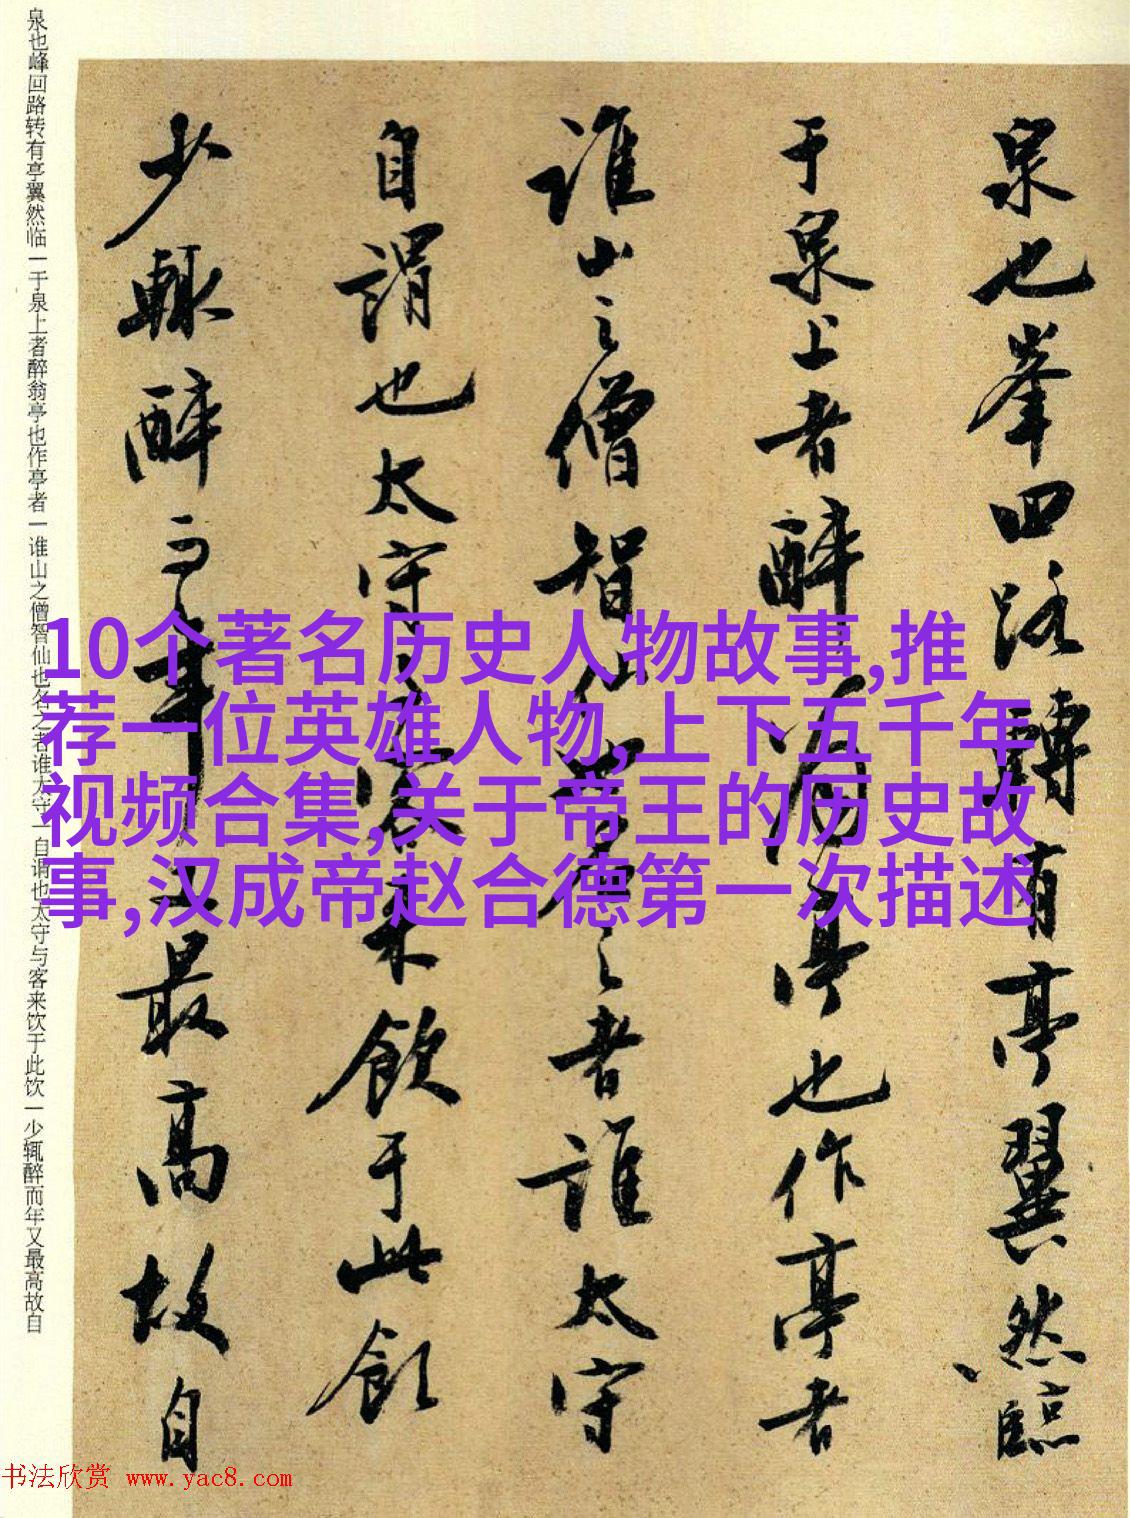 泉也峯回路轉有亭翼然臨
于泉上者醉翁亭也作亭者
誰山之僧智仙也名之者誰太守
自謂也太守与客来飲于此飲
少輒醉而年又最高故自
泉也峰回路转有亭翼然临一于泉上者醉翁亭也作亭者一谁山之僧智仙也名之者谁太守一自谓也太守与客来饮于此饮一少辄醉而年又最高故自
10个著名历史人物故事,推
荐一位英雄人物,上下五千年
视频合集,关于帝王的历史故
事,汉成帝赵合德第一次描述
书法欣赏 www.yac8.com